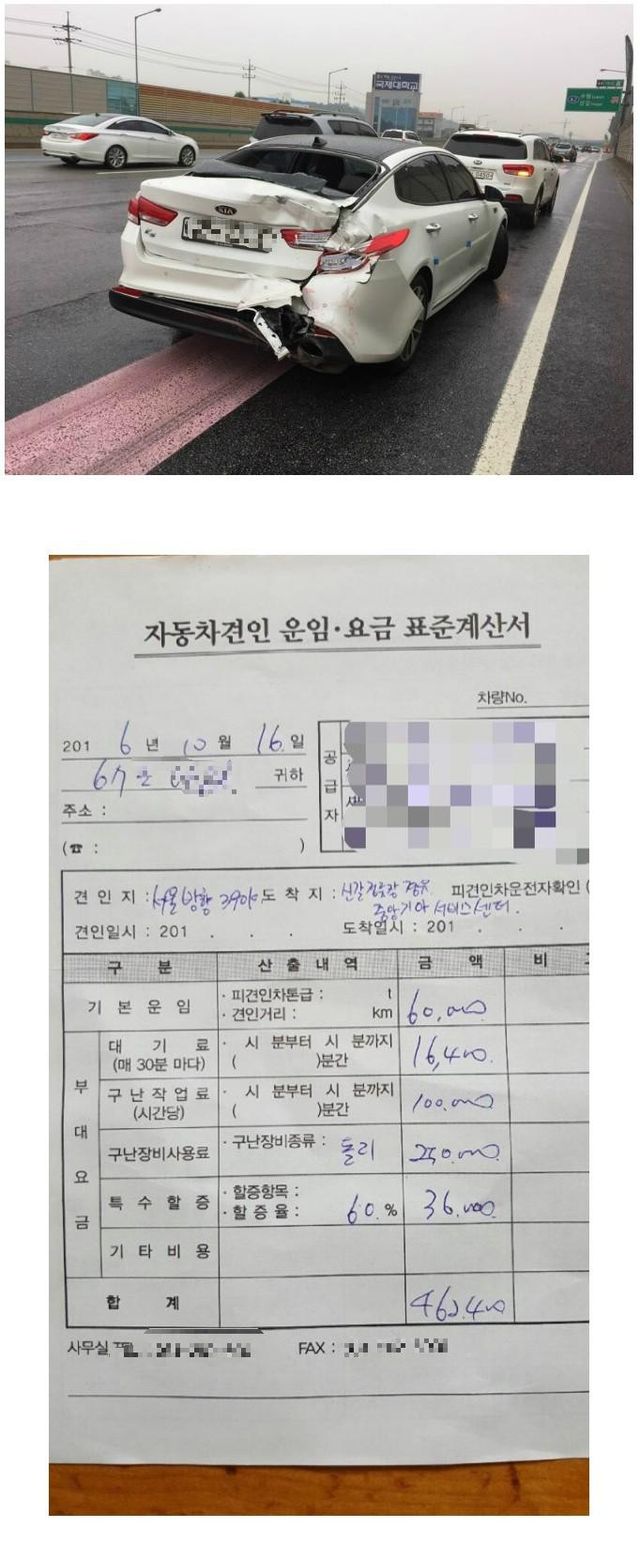 국제대학교
KIA
자동차견인 운임·요금 표준계산서
차량No.
201 6 년 10 월 16 일
귀하
주소 :
(☎ : )
공급자
견 인 지 : 서울방향 도 착 지 : 피견인차운전자확인 (
중앙기아서비스센터.
견인일시 : 201 . . . 도착열시 : 201 . . .
구 분 산 출 내 역 금 액 비
기 본 운 임 · 피견인차톤급 : t 60,000
· 견인거리 : km
부대요금
대 기 료 · 시 분부터 시 분까지 16,400
(매 30분 마다) ( )분간
구 난 작 업 료 · 시 분부터 시 분까지 100,000
(시간당) ( )분간
구난장비사용료 · 구난장비종류 : 돌리 250,000
특 수 할 증 · 할증항목 :
· 할 증 율 : 60 % 36,000
기 타 비 용
합 계 462,400
사무실 FAX :